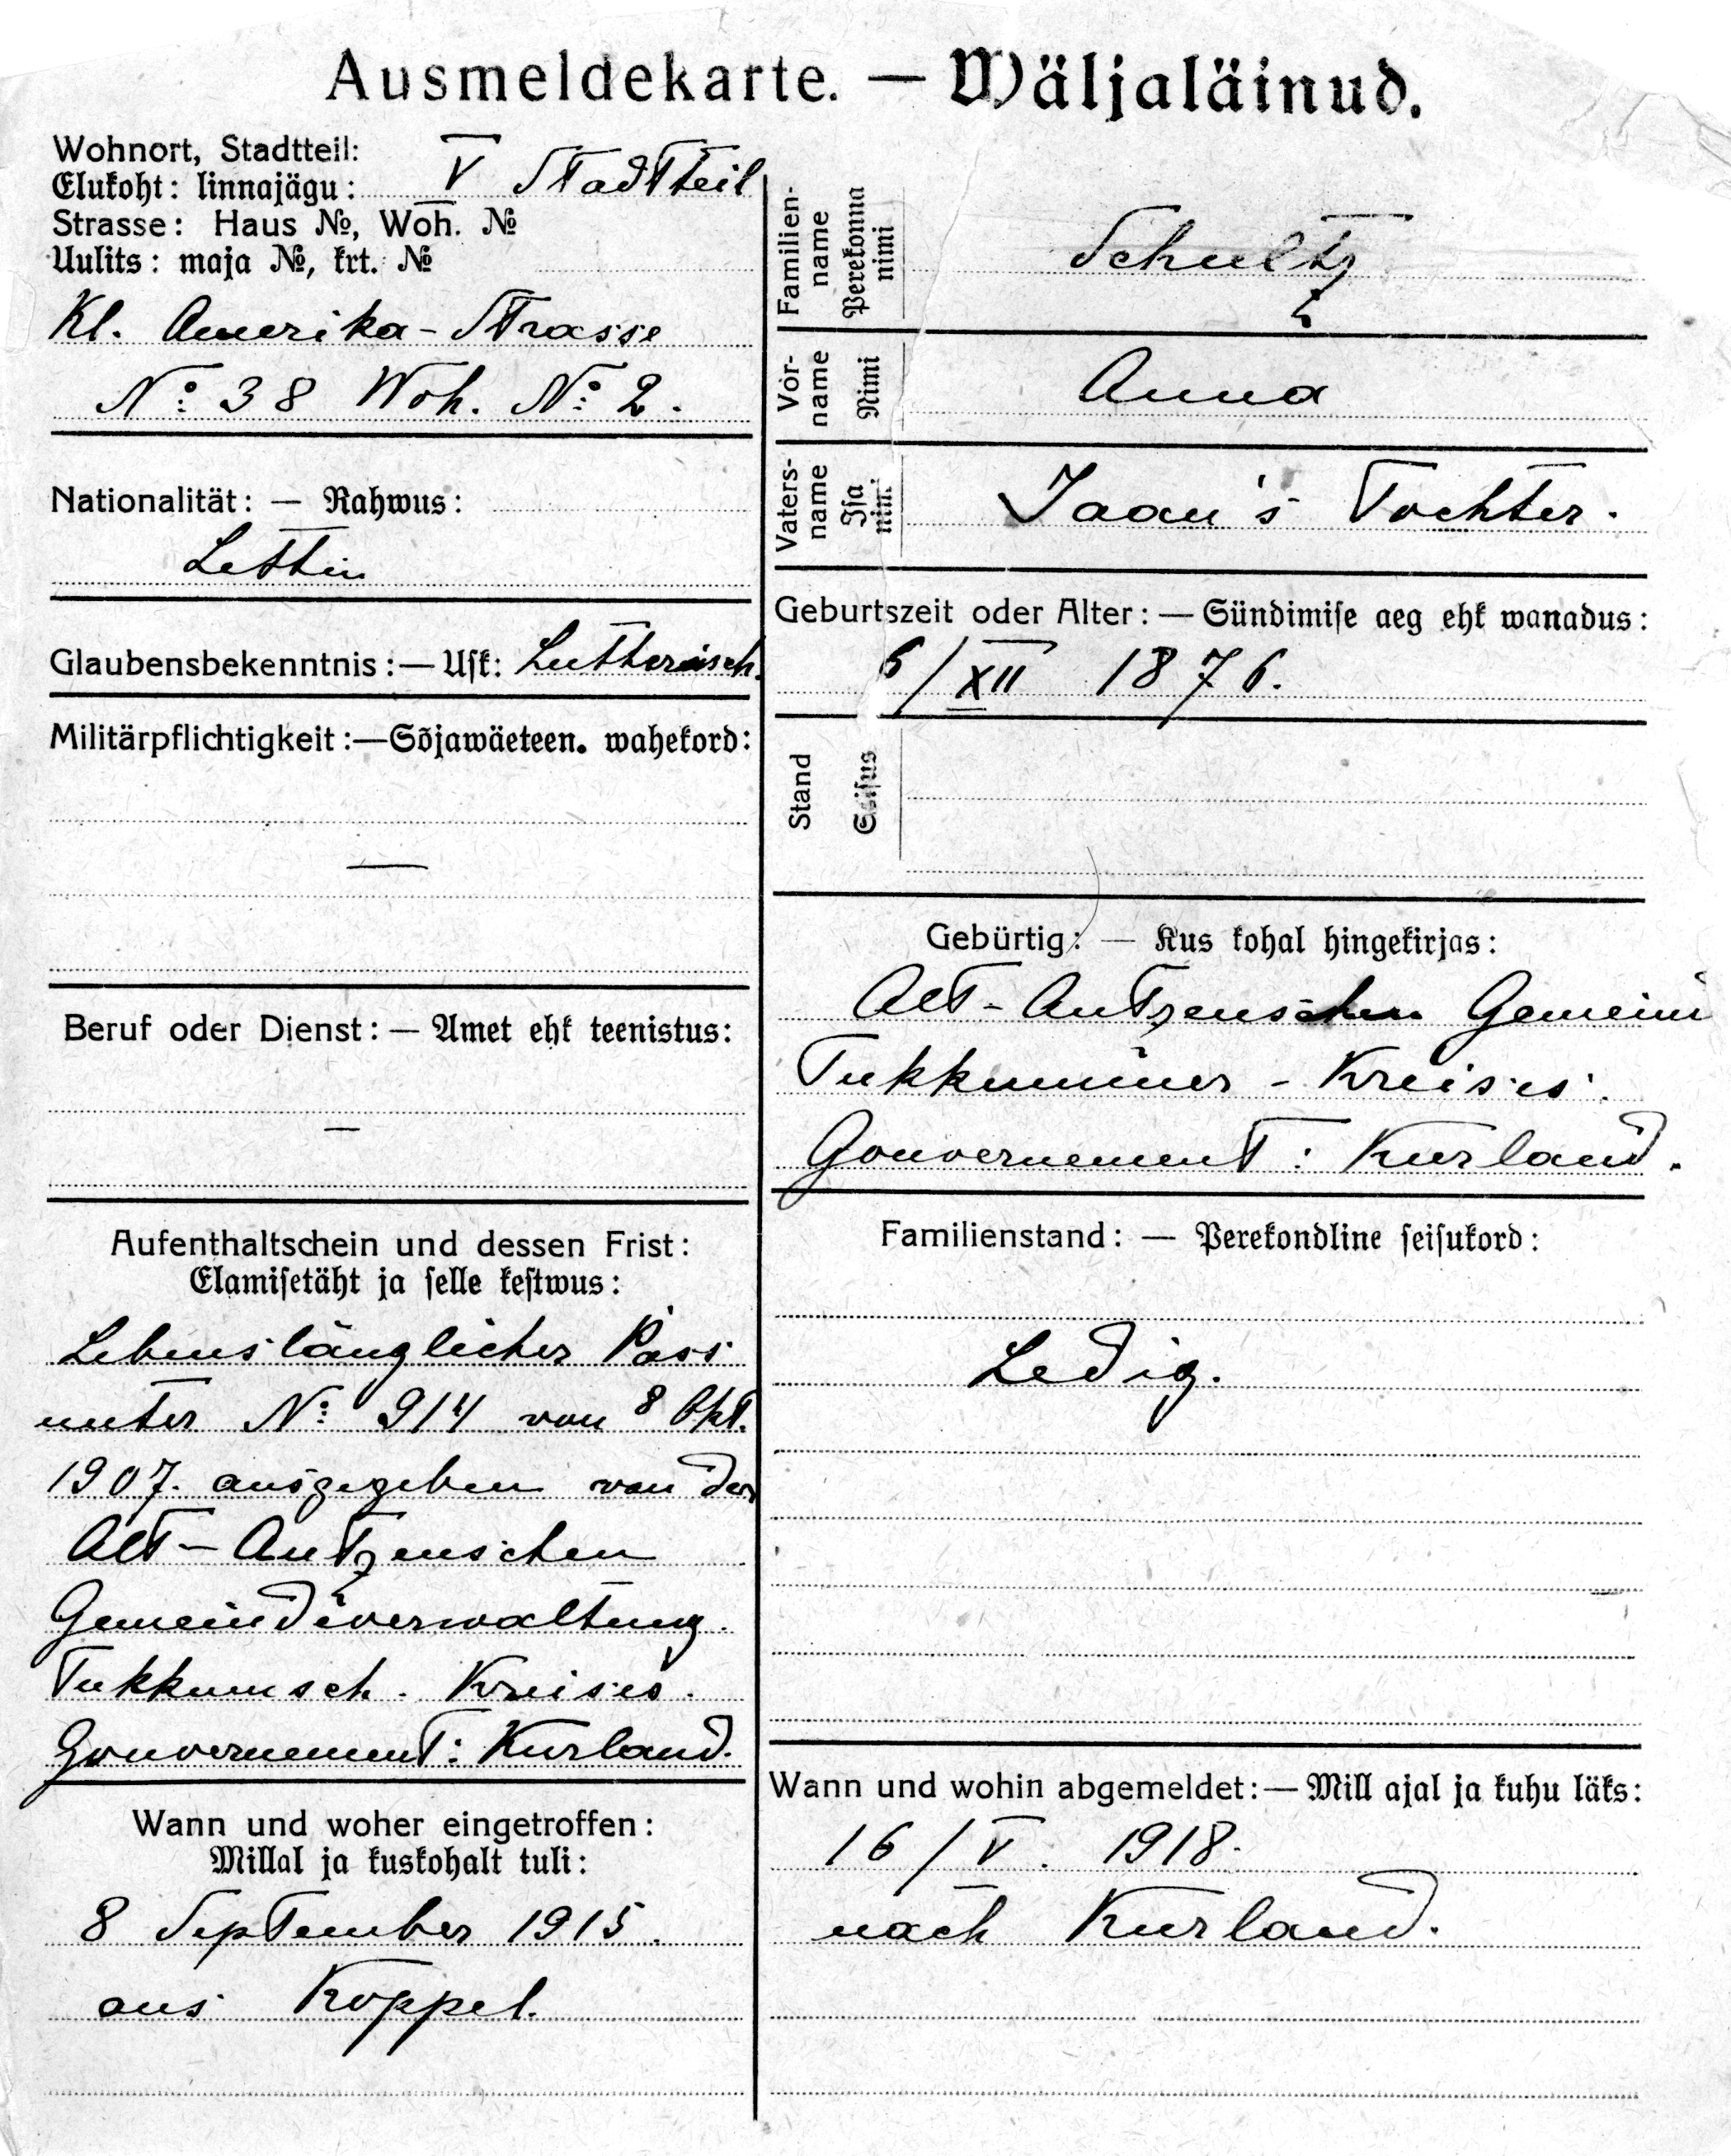 Ausmeldekarte. — Wäljaläinud.
Wohnort, Stadtteil:
Elukoht: linnajägu: V Stadtteil
Strasse: Haus №, Woh. №
Uulits: maja №, krt. №
Kl. Amerika-Strasse
№: 38 Woh. №: 2.
Nationalität: — Rahwus:
Lettin
Glaubensbekenntnis: — Usk: Lutherisch.
Militärpflichtigkeit: — Sõjawäeteen. wahekord:
—
Beruf oder Dienst: — Amet ehk teenistus:
—
Aufenthaltschein und dessen Frist:
Elamisetäht ja selle kestwus:
Lebenslänglicher Pass
unter №: 914 von 8 Okt.
1907. ausgegeben von der
Alt-Autzenschen
Gemeindeverwaltung.
Tukkumsch. Kreises.
Gouvernement: Kurland.
Wann und woher eingetroffen:
Millal ja kuskohalt tuli:
8 September 1915.
aus Koppel.
Familien-
name
Perekonna
nimi
Schultz
Vor-
name
Nimi
Anna
Vaters-
name
Isa
nimi
Jaan's Tochter.
Geburtszeit oder Alter: — Sündimise aeg ehk wanadus:
6/XII 1876.
Stand
Seisus
Gebürtig: — Kus kohal hingekirjas:
Alt-Autzenschen Gemein
Tukkummer-Kreises.
Gouvernement: Kurland.
Familienstand: — Perekondline seisukord:
Ledig.
Wann und wohin abgemeldet: — Mill ajal ja kuhu läks:
16/V. 1918.
nach Kurland.